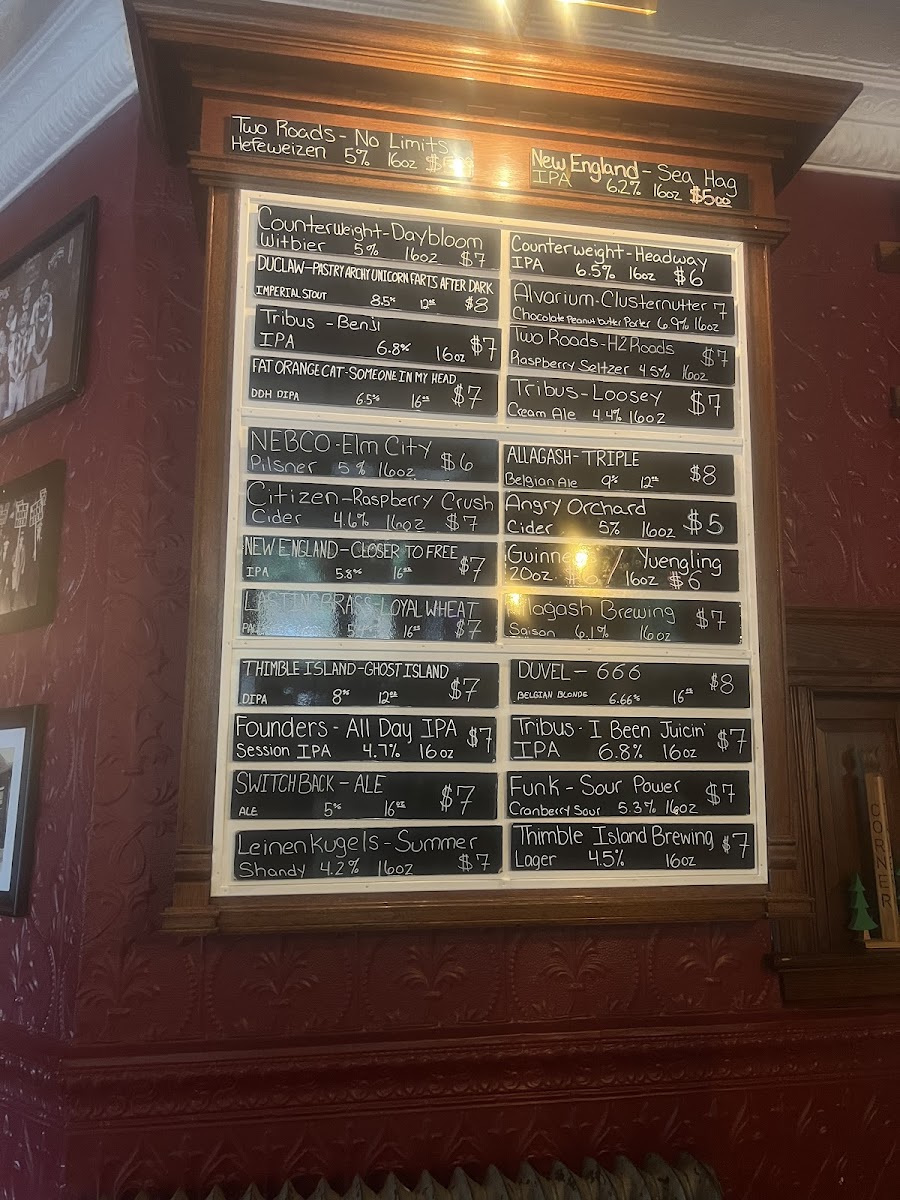 Two Roads - No Limits
Hefeweizen 5% 16oz
New England - Sea Hag
IPA 6.2% 16oz $5.00
Counterweight - Daybloom
Witbier 5% 16oz $7
DUCLAW - PASTRYARCHY UNICORN FARTS AFTER DARK
IMPERIAL STOUT 8.5% 12oz $8
Tribus - Benji
IPA 6.8% 16oz $7
FAT ORANGE CAT - SOMEONE IN MY HEAD
DDH DIPA 6.5% 16oz $7
NEBCO - Elm City
Pilsner 5% 16oz $6
Citizen - Raspberry Crush
Cider 4.6% 16oz $7
NEW ENGLAND - CLOSER TO FREE
IPA 5.8% 16oz $7
LASTING BRASS - LOYAL WHEAT
16oz $7
THIMBLE ISLAND - GHOST ISLAND
DIPA 8% 12oz $7
Founders - All Day IPA
Session IPA 4.7% 16oz $7
SWITCHBACK - ALE
ALE 5% 16oz $7
Leinenkugels - Summer
Shandy 4.2% 16oz $7
Counterweight - Headway
IPA 6.5% 16oz $6
Alvarium - Clusternutter 7
Chocolate Peanut butter Porter 6.9% 16oz
Two Roads - H2Roads
Raspberry Seltzer 4.5% 16oz $7
Tribus - Loosey
Cream Ale 4.4% 16oz $7
ALLAGASH - TRIPLE
Belgian Ale 9% 12oz $8
Angry Orchard
Cider 5% 16oz $5
Guinness / Yuengling
20oz 16oz $6
Allagash Brewing
Saison 6.1% 16oz $7
DUVEL - 666
BELGIAN BLONDE 6.66% 16oz $8
Tribus - I Been Juicin'
IPA 6.8% 16oz $7
Funk - Sour Power
Cranberry Sour 5.3% 16oz $7
Thimble Island Brewing
Lager 4.5% 16oz $7
CORNER